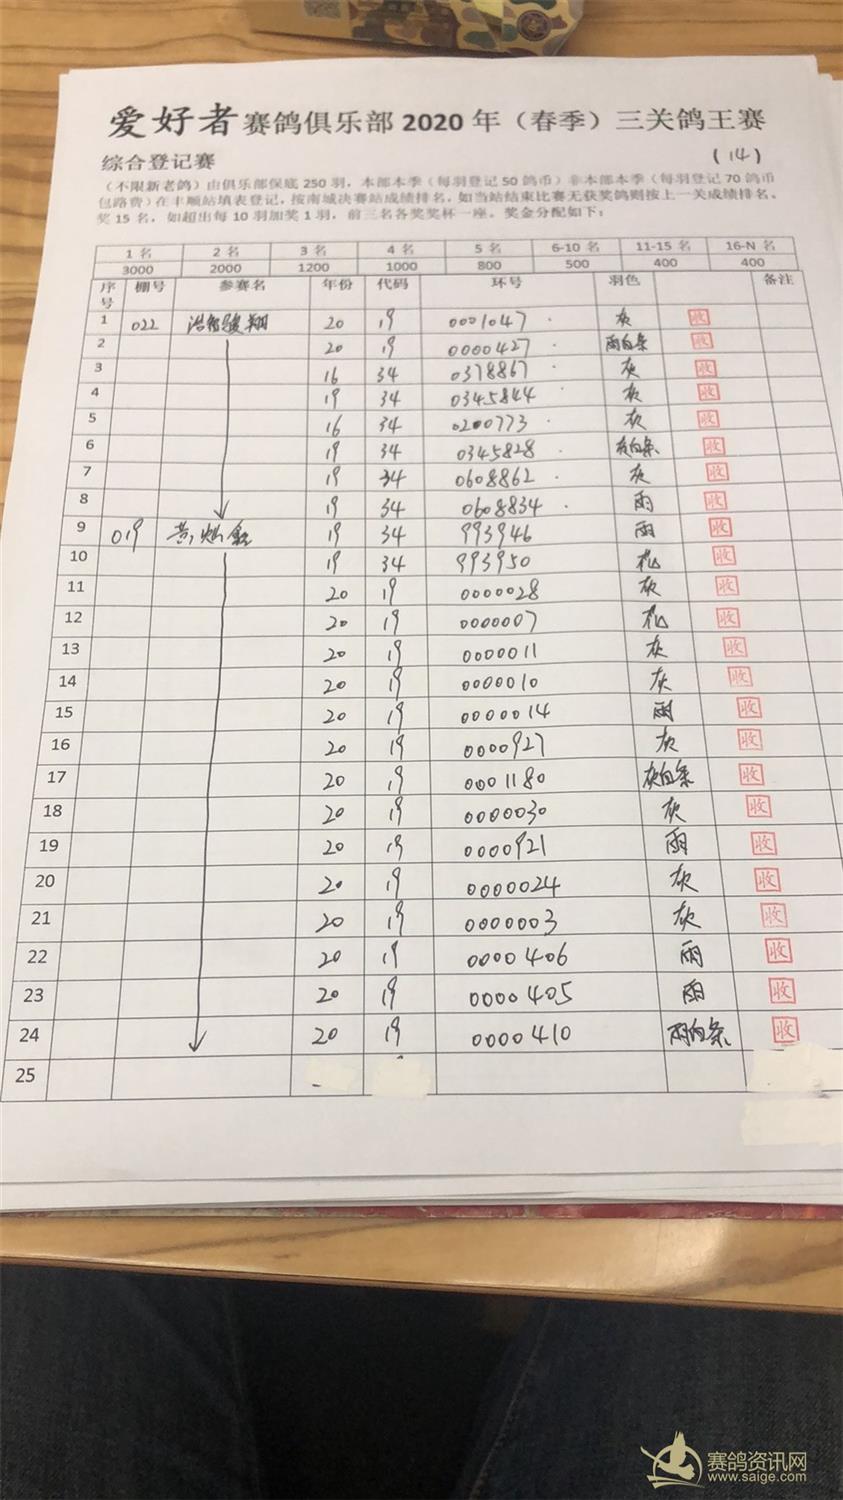 爱好者赛鸽俱乐部2020年（春季）三关鸽王赛
综合登记赛 (14)
（不限新老鸽）由俱乐部保底250羽，本部本季（每羽登记50鸽币）非本部本季（每羽登记70鸽币
包路费）在丰顺站填表登记，按南城决赛站成绩排名，如当站结束比赛无获奖鸽则按上一关成绩排名。
奖15名，如超出每10羽加奖1羽，前三名各奖奖杯一座。奖金分配如下：
1名 2名 3名 4名 5名 6-10名 11-15名 16-N名
3000 2000 1200 1000 800 500 400 400
序号 棚号 参赛名 年份 代码 环号 羽色 备注
1 022 浩智骏翔 20 19 0001047 灰 收
2 20 19 0000427 雨白条 收
3 16 34 0378867 灰 收
4 19 34 0345844 灰 收
5 16 34 0200773 灰 收
6 19 34 0345828 灰白条 收
7 19 34 0608862 灰 收
8 19 34 0608834 雨 收
9 019 黄灿 19 34 993946 雨 收
10 19 34 993950 花 收
11 20 19 0000028 灰 收
12 20 19 0000007 花 收
13 20 19 0000011 灰 收
14 20 19 0000010 灰 收
15 20 19 0000014 雨 收
16 20 19 0000927 灰 收
17 20 19 0001180 灰白条 收
18 20 19 0000030 灰 收
19 20 19 0000921 雨 收
20 20 19 0000024 灰 收
21 20 19 0000003 灰 收
22 20 19 0000406 雨 收
23 20 19 0000405 雨 收
24 20 19 0000410 雨白条 收
25
赛鸽资讯网
www.saige.com